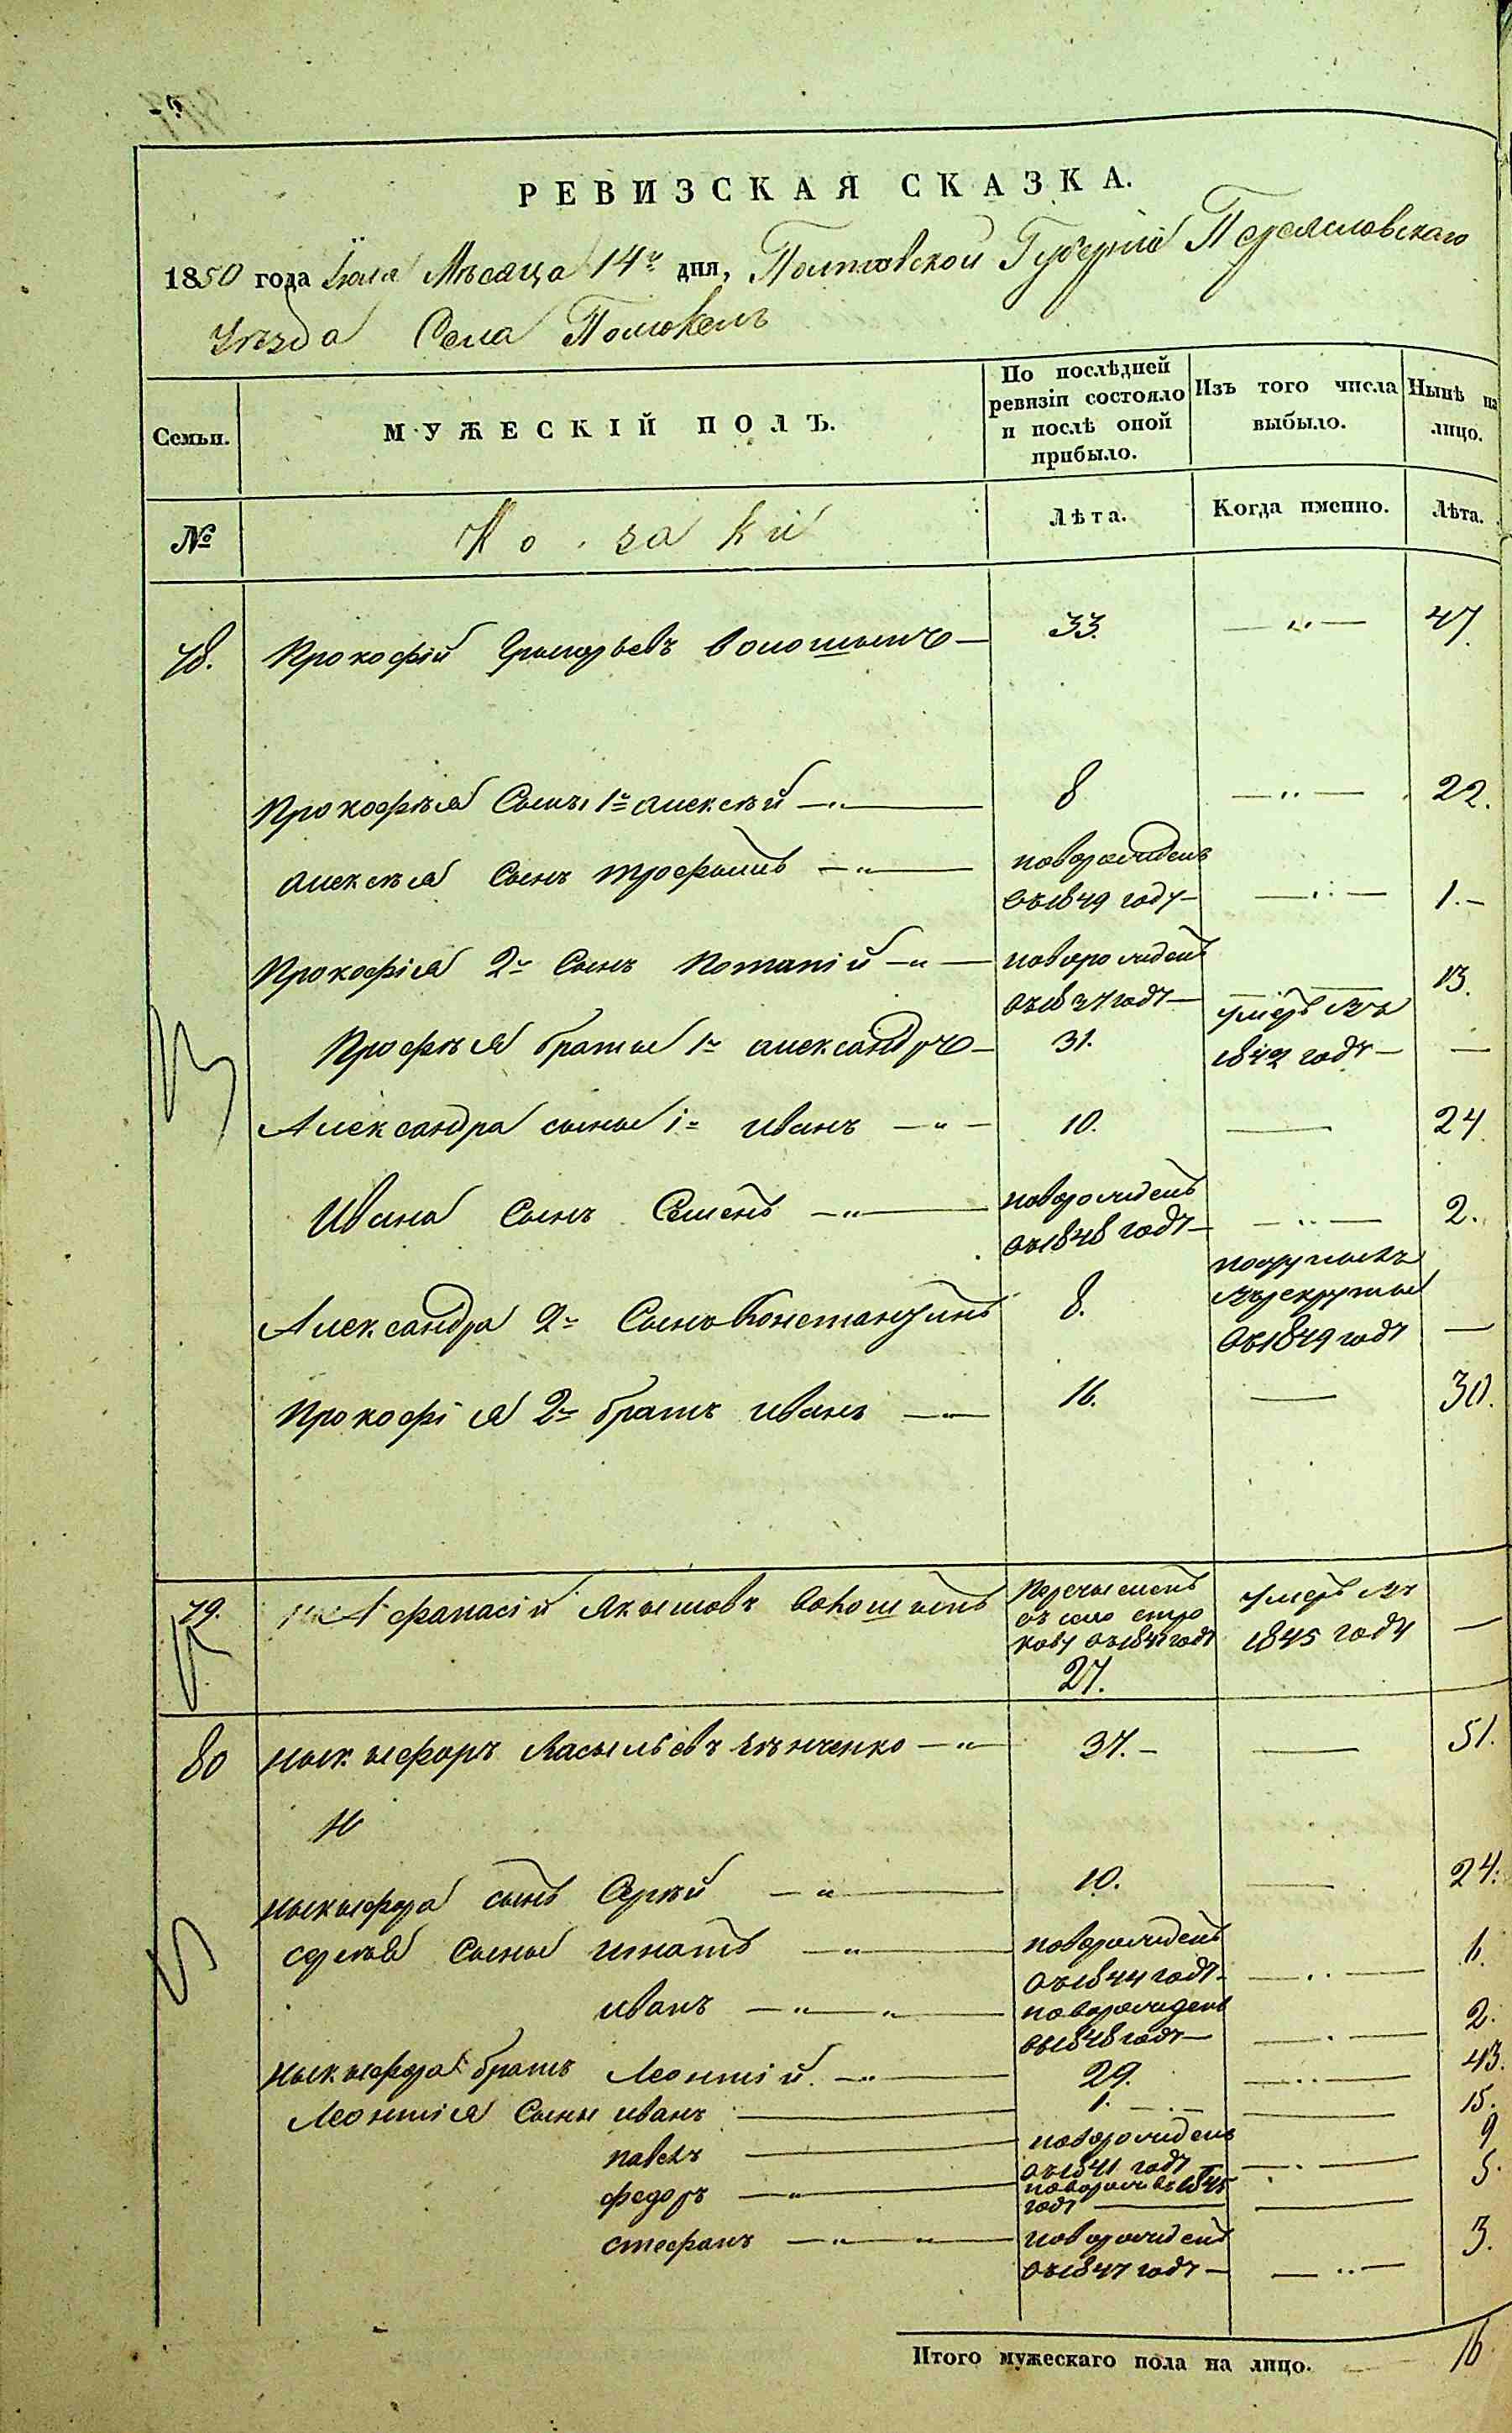 РЕВИЗСКАЯ СКАЗКА.
1850 года Іюля Мѣсяца 14го дня, Полтавской Губерніи Переясловскаго
Уѣзда Села Помокель
Семьи.
МУЖЕСКІЙ ПОЛЪ.
По послѣдней ревизіи состояло и послѣ оной прибыло.
Изъ того числа выбыло.
Нынѣ на лицо.
№
Козаки
Лѣта.
Когда именно.
Лѣта.
78. Прокофій Григорьевъ Волошынъ — 33. — „ — 47.
Прокофѣя Сынъ 1й алексѣй — „ — 8 — „ — 22.
алексѣя Сынъ трофымъ — „ — новорожденъ
въ 1849 году — — „ — 1. —
Прокофія 2й Сынъ Потапій — „ — новорожденъ
въ 1837 году — 13.
Профѣя братья 1й александръ — 31. умеръ въ
1842 году — —
Александра сыны 1й иванъ — „ — 10. — 24.
Ивана Сынъ Семенъ — „ — новорожденъ
въ 1848 году — — „ — 2.
Александра 2й Сынъ Константинъ 8. поступылъ
въ рекруты
въ 1849 году —
Прокофія 2й братъ иванъ — 16. — 30.
79. Афанасій Якымовъ Волошынъ Перечысленъ
въ 1841 году
27.
умеръ въ
1845 году —
80 ныкыфоръ Васыльевъ — „ — 37. — — 51.
ныкыфора сынъ Сергѣй — „ — 10. — 24.
сергѣя Сыны игнатъ — „ — новорожденъ
въ 1844 году — — „ —
иванъ — „ — „ — новорожденъ
въ 1848 году — — „ — 2.
ныкыфора братъ Леонтій. — „ — 29. — „ — 43.
Леонтія Сыны иванъ — 1. — 15.
павелъ — новорожденъ
въ 1841 году — „ — 9
федоръ — „ — новорож въ 1845
году — — 5.
стефанъ — „ — „ — новорожденъ
въ 1847 году — — „ — 3.
Итого мужескаго пола на лицо. — 16